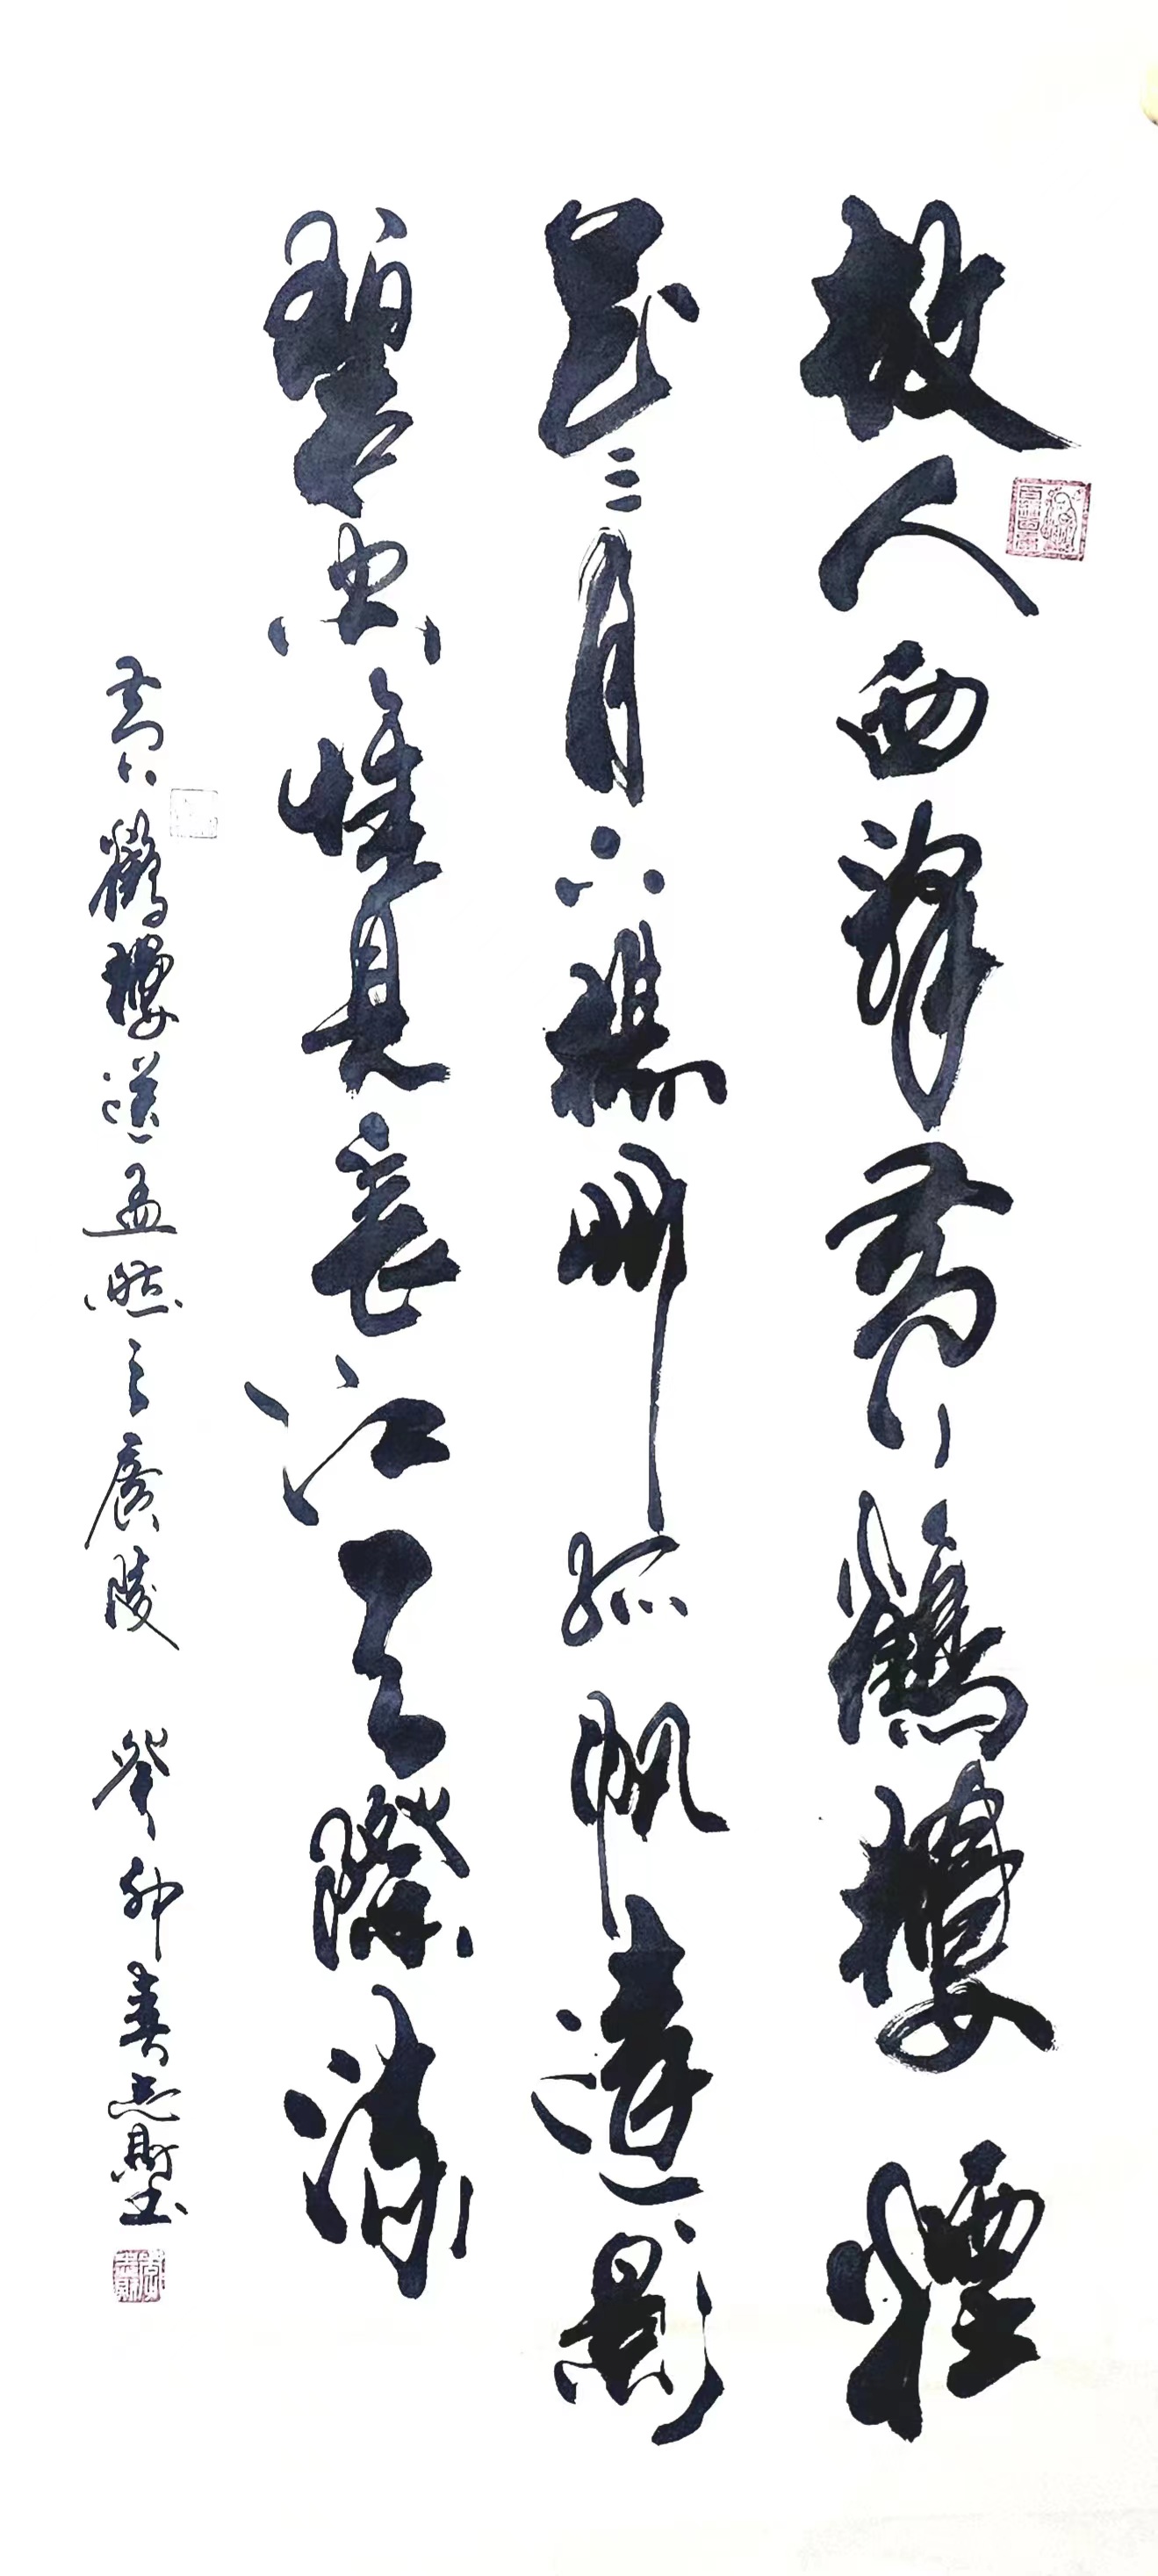 故人西辭黃鶴樓煙
花三月下揚州孤帆遠影
碧空惟見長江天際流
黃鶴樓送孟然之廣陵 癸卯春志書